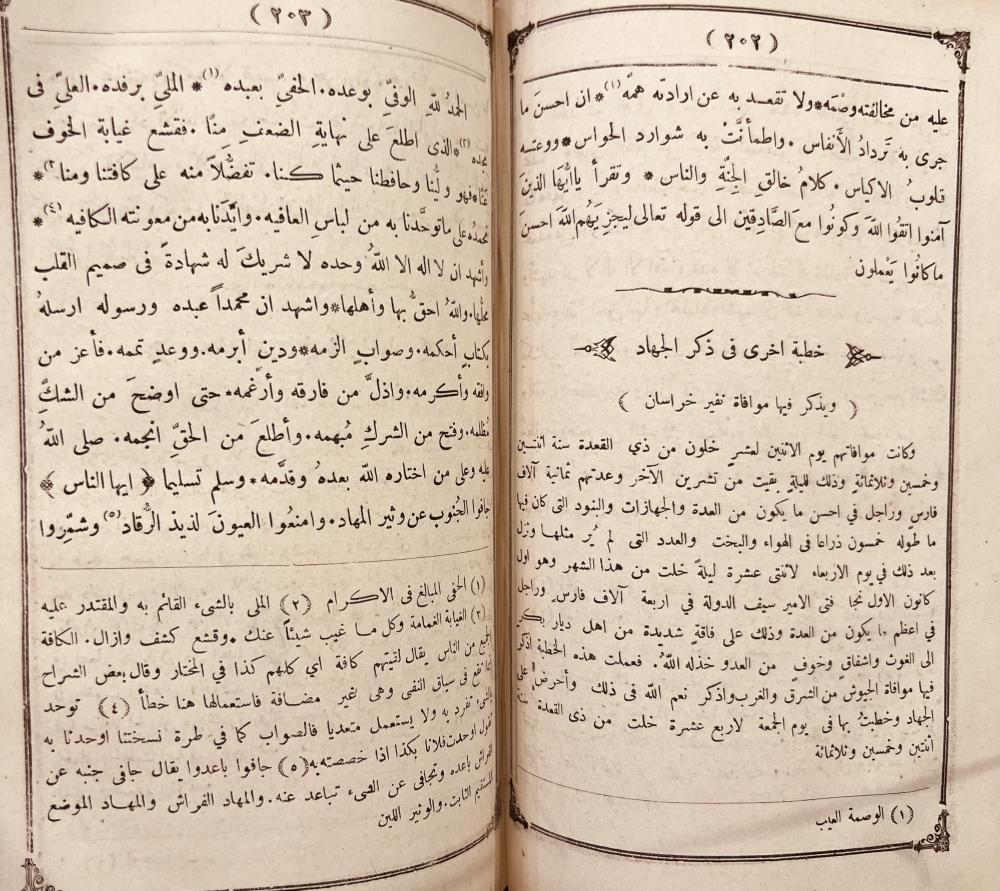 (٢٠٢)
عليه من مخالفته وصْمَه * ولا تقعد به عن ارادته همَّه (١) * ان احسنَ ما
جرى به تَردادُ الأَنفاس . واطمأنَّتْ به شوارد الحواس * ووعتسه
قلوبُ الاكياس . كلامُ خالقِ الجِنَّةِ والناس * وتقرأ ياايُّها الذينَ
آمنوا اتقُوا اللّٰهَ وكونُوا معَ الصَّادِقين الى قوله تعالى ليجزِيَهُم اللّٰهَ احسنَ
ماكانُوا يَعْملون
خطبة اخرى فى ذكر الجهاد
( ويذكر فيها موافاة نفير خراسان )
وكانت موافاتهم يوم الاثنين لعشرٍ خلون من ذي القعدة سنة اثنتين
وخمسين وثلاثمائةٍ وذلك لليلةٍ بقيت من تشرين الآخر وعدتهم ثمانية آلاف
فارسٍ وراجل في احسن ما يكون من العدة والجهازات والبنود التى كان فيها
ما طوله خمسون ذراعا فى الهواء والبخت والعدد التى لم يُر مثلها ونزل
بعد ذلك في يوم الاربعاء لاثنتى عشرة ليلةً خلت من هذا الشهر وهو اول
كانون الاول نجا فتى الامير سيف الدولة في اربعة آلاف فارسٍ وراجل
في اعظم ما يكون من العدة وذلك على فاقةٍ شديدة من اهل ديار بكر
الى الغوث واشفاقٍ وخوفٍ من العدو خذله اللّٰهُ. فعملت هذه الخطبة اذكر
فيها موافاة الجيوش من الشرق والغرب واذكر نعم اللّٰه فى ذلك وأحرضُ على
الجهاد وخطبتُ بها فى يوم الجمعة لاربع عشرة خلت من ذى القعدة سنة
اثنتين وخمسين وثلاثمائة
(١) الوصمة العيب
(٢٠٣)
الحمدُ للّٰهِ الوفيِّ بوعده. الحفيِّ بعبده (١) * المليِّ برفده. العليِّ فى
مجده (٢) * الذى اطلعَ على نهايةِ الضعفِ مِنَّا. فقشع غيابة الخوف
عنَّا * فهو وليُّنا وحافظنا حيثما كنا. تفضُّلاً منه على كافتنا ومنا (٣) *
نحمدُه على ماتوحَّدنا به من لباسِ العافيه. وأيَّدَنا به من معونته الكافيه (٤) *
وأشهد ان لا اله الا اللّٰهُ وحده لا شريكَ له شهادةً فى صميم القلب
محلُّها. واللّٰهُ احقُّ بها وأهلها * واشهد ان محمداً عبده ورسوله ارسلهُ
بكتابٍ أحكمه. وصوابٍ الزمه * ودينٍ أبرمه. ووعدٍ تممه. فأعز من
وافقه وأكرمه. واذلَّ من فارقه وأرغمه. حتى اوضحَ من الشكِّ
مُظلمه. وفتح من الشركِ مُبهمه. وأطلعَ من الحقِّ انجمه. صلى اللّٰهُ
عليه وعلى من اختاره اللّٰه بعدهُ وقدَّمه * وسلم تسليما ﴿ ايها الناس ﴾
جافوا الجُنوب عن وثير المهاد. وامنعُوا العيونَ لذيذ الرُّقاد (٥) وشمِّروا
(١) الحفى المبالغ فى الاكرام (٢) الملى بالشيء القائم به والمقتدر عليه
(٣) الغيابة الغمامة وكل ما غيب شيئاً عنك . وقشع كشف وازال. الكافة
الجميع من الناس يقال لقيتهم كافة اي كلهم كذا في المختار وقال بعض الشراح
انما تقع فى سياق النفى وهى غير مضافة فاستعمالها هنا خطأ (٤) توحد
بالشيء تفرد به ولا يستعمل متعديا فالصواب كما في طرة نسختنا اوحدنا به
تقول اوحدت فلانا بكذا اذا خصصته به (٥) جافوا باعدوا يقال جافى جنبه عن
الفراش باعده وتجافى عن الشيء تباعد عنه. والمهاد الفراش والمهاد الموضع
المستقيم الثابت. والوثير اللين